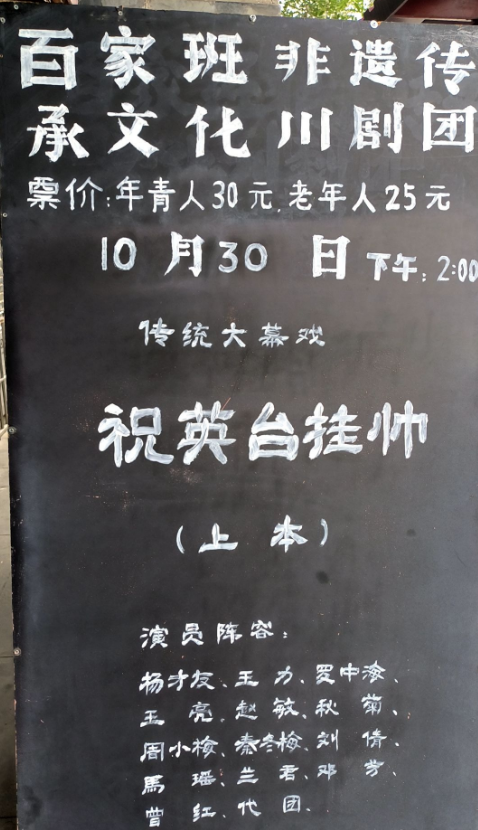 百家班非遗传
承文化川剧团
票价:年青人30元.老年人25元
10月30日下午:2:00
传统大幕戏
祝英台挂帅
(上本)
演员阵容:
杨才友、王力、罗中海、
王亮、赵敏、秋菊、
周小梅、秦冬梅、刘倩、
馬瑶、兰君、邓芳、
曾红、代团.